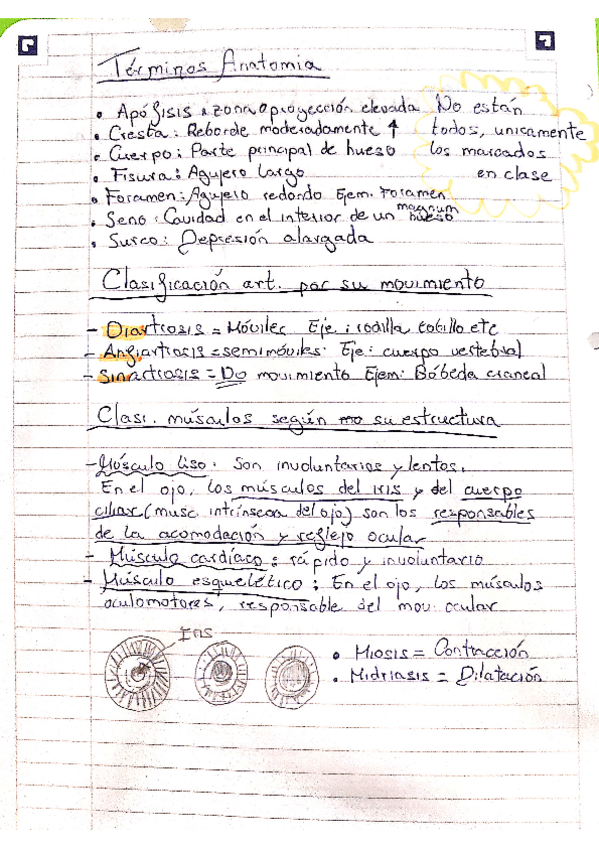 Términos Anatomia
• Apófisis : zona o proyección elevada
• Cresta : Reborde moderadamente ↑
• Cuerpo : Parte principal de hueso
• Fisura : Agujero largo
• Foramen : Agujero redondo Ejem. Foramen magnum
• Seno : Cavidad en el interior de un hueso
• Surco : Depresión alargada
No están
todos, unicamente
los marcados
en clase
Clasificación art. por su movimiento
- Diartrosis = Móviles Eje : rodilla tobillo etc
- Anfiartrosis = semimóviles. Eje : cuerpo vertebral
- Sinartrosis = No movimiento Ejem : Bóbeda craneal
Clasi. músculos según su estructura
- Músculo liso. Son involuntarios y lentos.
En el ojo, los músculos del iris y del cuerpo
ciliar (musc intrínseca del ojo) son los responsables
de la acomodación y reflejo ocular
- Músculo cardíaco : rápido y involuntario
- Músculo esquelético : En el ojo, los músculos
oculomotores, responsable del mov. ocular
Iris
• Miosis = Contracción
• Midriasis = Dilatación